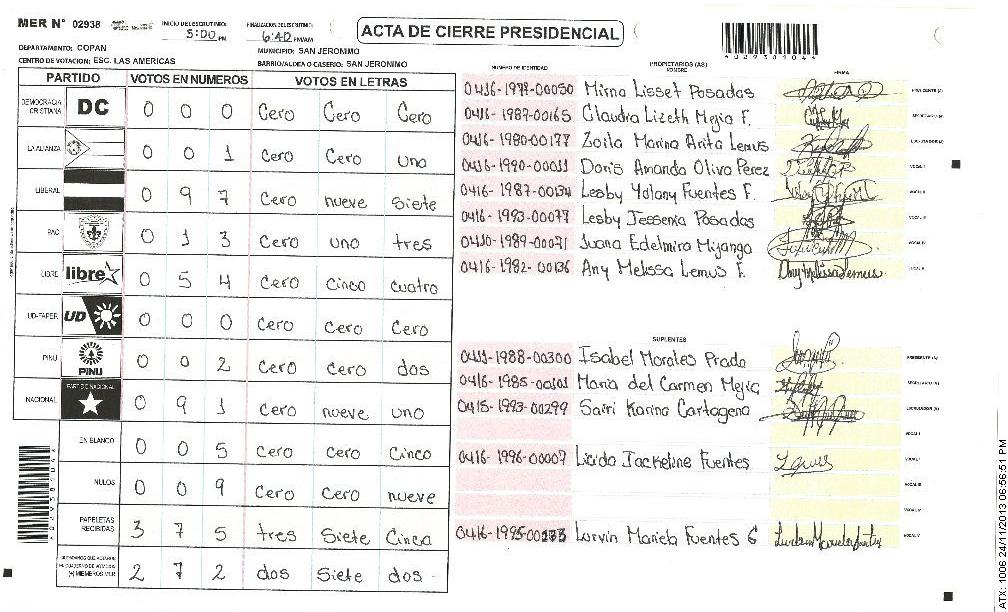 MER N° 02938
INICIO DEL ESCRUTINIO: 5:00 PM
FINALIZACION DEL ESCRUTINIO: 6:40 PM/AM
ACTA DE CIERRE PRESIDENCIAL
DEPARTAMENTO: COPAN
MUNICIPIO: SAN JERONIMO
CENTRO DE VOTACION: ESC. LAS AMERICAS
BARRIO/ALDEA O CASERIO: SAN JERONIMO
PARTIDO VOTOS EN NUMEROS VOTOS EN LETRAS
DEMOCRACIA CRISTIANA DC 0 0 0 Cero Cero Cero
LA ALIANZA 0 0 1 Cero Cero uno
LIBERAL 0 9 7 Cero nueve Siete
PAC 0 1 3 Cero uno tres
LIBRE libre 0 5 4 Cero Cinco cuatro
UD-FAPER UD 0 0 0 Cero Cero Cero
PINU PINU 0 0 2 Cero Cero dos
NACIONAL PARTIDO NACIONAL 0 9 1 Cero nueve uno
EN BLANCO 0 0 5 Cero Cero Cinco
NULOS 0 0 9 Cero Cero nueve
PAPELETAS RECIBIDAS 3 7 5 tres Siete Cinco
CIUDADANOS QUE VOTARON 2 7 2 dos Siete dos
NUMERO DE IDENTIDAD PROPIETARIOS (AS) NOMBRE FIRMA
Mirna Lisset Posadas PRESIDENTE (A)
0416-1987-00165 Claudia Lizeth Mejia F. SECRETARIO (A)
0416-1980-00177 Zoila Marina Arita Lemus ESCRUTADOR (A)
0416-1990-00011 Doris Amanda Oliva Perez VOCAL I
0416-1987-00134 Lesby Yolany Fuentes F. VOCAL II
0416-1993-00077 Lesby Jessenia Posadas VOCAL III
Juana Edelmira Mijango VOCAL IV
0416-1982-00136 Any Melissa Lemus F. VOCAL V
SUPLENTES
Isabel Morales Prado PRESIDENTE (A)
Maria del Carmen Mejia SECRETARIO (A)
0415-1993-00299 Sairi Karina Cartagena ESCRUTADOR (A)
VOCAL I
0416-1996-00007 Jackeline Fuentes VOCAL II
VOCAL III
VOCAL IV
Mariela Fuentes G VOCAL V
ATX: 1006 24/11/2013 06:56:51 PM